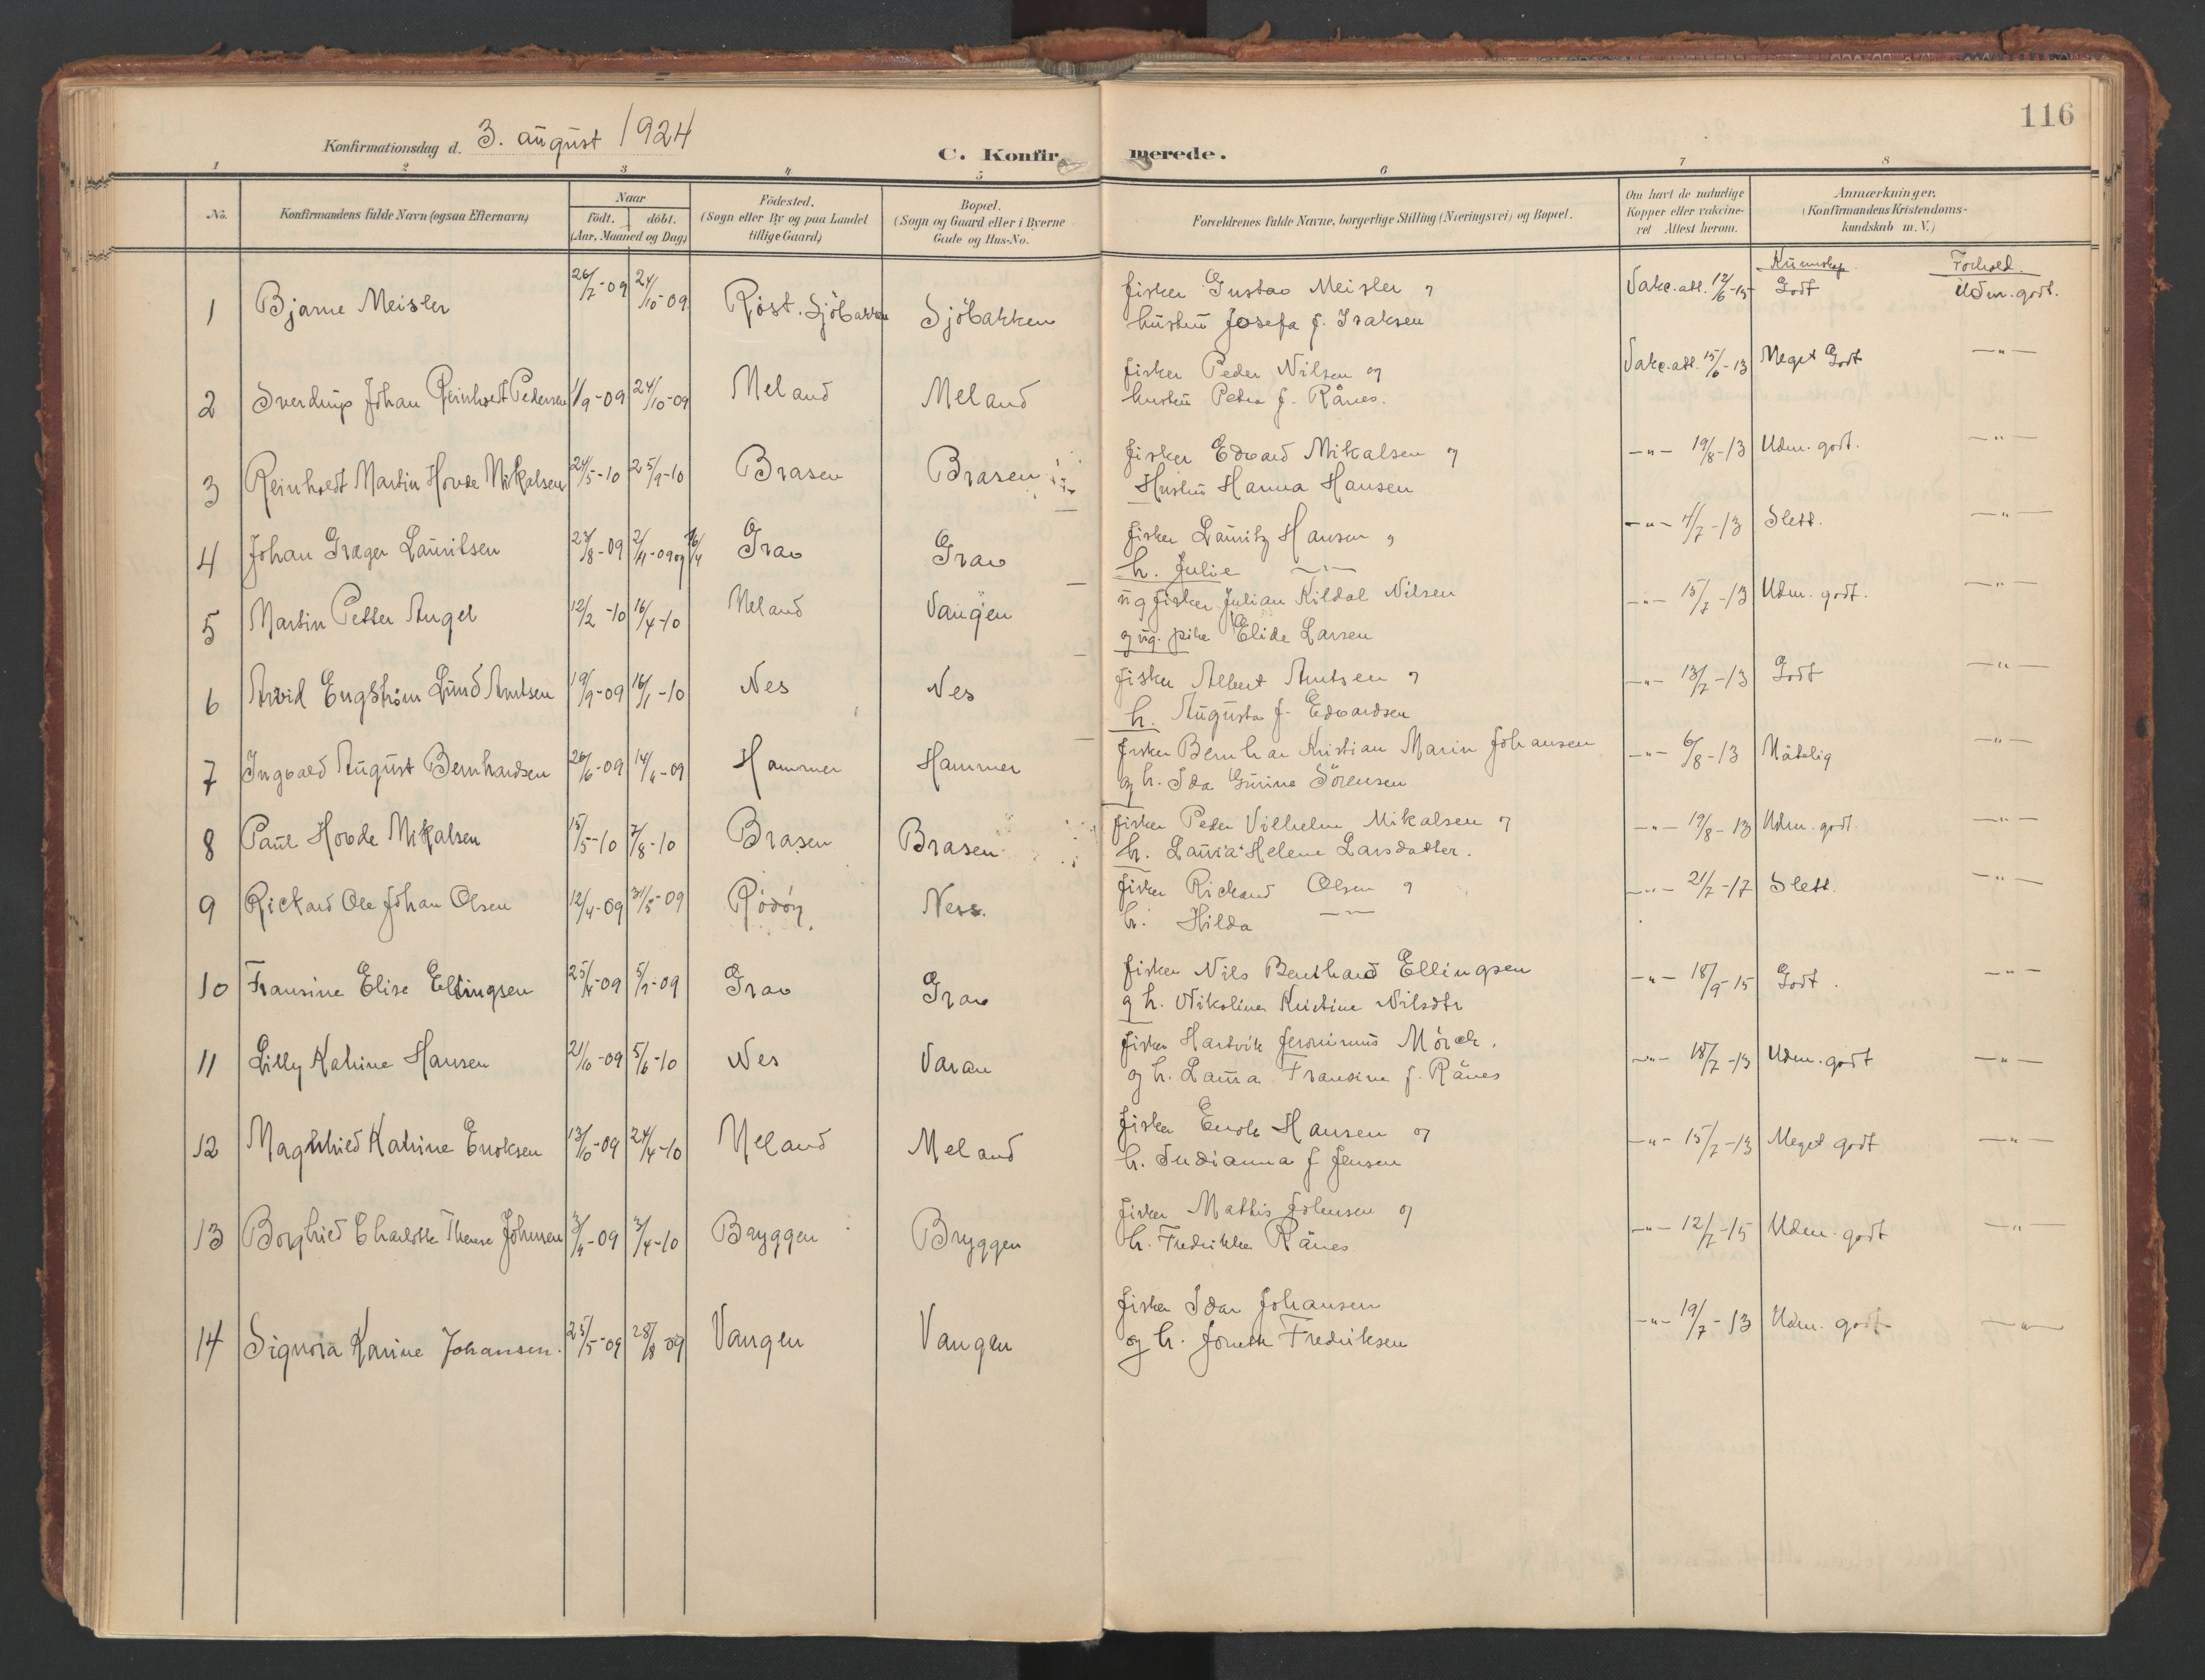 116
Konfirmationsdag d. 3. august 1924
C. Konfirmerede.
1 2 3 4 5 6 7 8
No. Konfirmandens fulde Navn (ogsaa Efternavn) Naar født. döbt. (Aar, Maaned og Dag) Födested. (Sogn eller By og paa Landet tillige Gaard) Bopæl. (Sogn og Gaard eller i Byerne Gade og Hus-No. Forældrenes fulde Navne, borgerlige Stilling (Næringsvei) og Bopæl. Om havt de naturlige Kopper eller vaccineret Attest herom. Anmærkninger. (Konfirmandens Kristendomskundskab m. V.)
Kunnskap Forhold
1 Bjarne Meisler 26/7-09 24/10-09 Røst. Sjöbakken Sjöbakken fisker Gustav Meisler og Vakc. att. 12/6-15 Godt Udm. godt.
hustru Josefa f. Isaksen
2 Sverdrup Johan Reinholdt Pedersen 1/9-09 24/10-09 Meland Meland fisker Peder Nilsen og Vakc. att. 15/6-13 Meget Godt —"—
hustru Petra f. Rånes.
3 Reinholdt Martin Hovde Mikalsen 24/5-10 25/9-10 Brasen Brasen fisker Edvard Mikalsen og —"— 19/8-13 Udm. godt. —"—
Hustru Hanna Hansen
4 Johan Græger Lauritsen 23/8-09 2/11-09 og 16/4 Grav Grav fisker Lauritz Hansen og —"— 4/7-13 Slett. —"—
h. Julie —"—
5 Martin Petter Angel 12/2-10 16/4-10 Meland Vangen ug fisker Julian Kildal Nilsen —"— 15/7-13 Udm. godt. —"—
og ug. pike Elide Larsen
6 Arvid Engstrøm Lund Arntsen 19/9-09 16/1-10 Nes Nes fisker Albert Arntsen og —"— 13/7-13 Godt —"—
h. Augusta f. Edvardsen
7 Ingvald August Bernhardsen 26/6-09 14/-09 Hammer Hammer fisker Bernhar Kristian Marin Johansen —"— 6/8-13 Måtelig —"—
og h. Ida Gurine Sörensen
8 Paul Hovde Mikalsen 15/5-10 7/8-10 Brasen Brasen fisker Peder Vilhelm Mikalsen og —"— 19/8-13 Udm. godt. —"—
h. Laura Helene Larsdatter.
9 Rickard Ole Johan Olsen 12/4-09 31/5-09 Rödöy Ness. fisker Rickard Olsen og —"— 21/7-17 Slett. —"—
h. Hilda —"—
10 Fransine Elise Ellingsen 25/4-09 5/9-09 Grav Grav fisker Nils Benthard Ellingsen —"— 18/9-15 Godt. —"—
og h. Nikoline Kristine Nilsdtr
11 Lilly Katrine Hansen 21/6-09 5/6-10 Nes Varan fisker Hartvik Jeronimus Mörch. —"— 18/7-13 Udm. godt —"—
og h. Laura Fransine f. Rånes
12 Magnhied Katrine Enoksen 13/10-09 24/4-10 Meland Meland fisker Enok Hansen og —"— 15/7-13 Meget godt —"—
h. Indianna f Jensen
13 Borghied Charlotte Therese Johnsen 3/-09 3/4-10 Bryggen Bryggen fisker Mathis Johnsen og —"— 12/7-15 Udm. godt —"—
h. Fredrikke Rånes
14 Signora Karine Johansen. 25/5-09 28/8-09 Vangen Vangen fisker Idar Johansen —"— 19/7-13 Udm. godt —"—
og h. Fredriksen